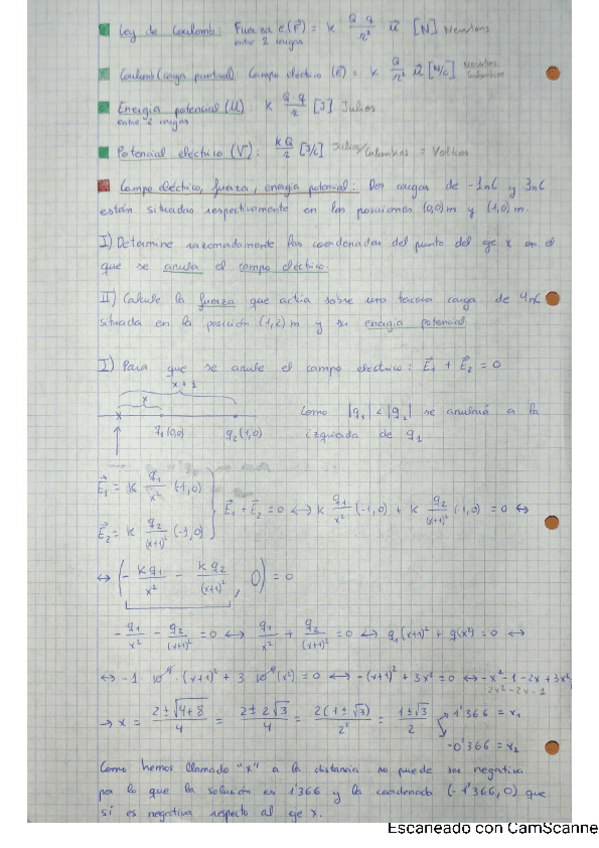 Ley de Coulomb: Fuerza e.(F⃗) = K Q q / r² u⃗ [N] Newtons
entre 2 cargas
Coulomb (carga puntual) Campo eléctrico (E⃗) = K Q / r² u⃗ [N/C] Newtons Culombios
Energía potencial (U): K Q q / r [J] Julios
entre 2 cargas
Potencial eléctrico (V): KQ / r [J/C] Julios/Culombios = Voltios
Campo eléctrico, fuerza, energía potencial: Dos cargas de -1nC y 3nC
están situadas respectivamente en las posiciones (0,0) m y (1,0) m.
I) Determine razonadamente las coordenadas del punto del eje x en el
que se anula el campo eléctrico.
II) Calcule la fuerza que actúa sobre una tercera carga de 4nC
situada en la posición (1,2) m y su energía potencial
I) Para que se anule el campo electrico: E⃗₁ + E⃗₂ = 0
x + 1
x
q₁(0,0) q₂(1,0)
Como |q₁| < |q₂| se anulará a la
izquierda de q₁
E⃗₁ = K q₁ / x² (-1,0)
E⃗₂ = K q₂ / (x+1)² (-1,0)
E⃗₁ + E⃗₂ = 0 ↔ K q₁ / x² (-1,0) + K q₂ / (x+1)² (-1,0) = 0 ↔
↔ (- K q₁ / x² - K q₂ / (x+1)² , 0) = 0
- q₁ / x² - q₂ / (x+1)² = 0 ↔ q₁ / x² + q₂ / (x+1)² = 0 ↔ q₁(x+1)² + q(x²) = 0 ↔
↔ -1 10⁻⁹ · (x+1)² + 3 10⁻⁹(x²) = 0 ↔ -(x+1)² + 3x² = 0 ↔ -x² -1 -2x + 3x²
2x² - 2x - 1
→ x = 2 ± √4+8 / 4 = 2 ± 2√3 / 4 = 2(1 ± √3) / 2² = 1 ± √3 / 2 1'366 = x₁
-0'366 = x₂
Como hemos llamado "x" a la distancia no puede ser negativa
por lo que la solución es 1'366 y la coordenada (-1'366, 0) que
sí es negativa respecto al eje x.
Escaneado con CamScanne